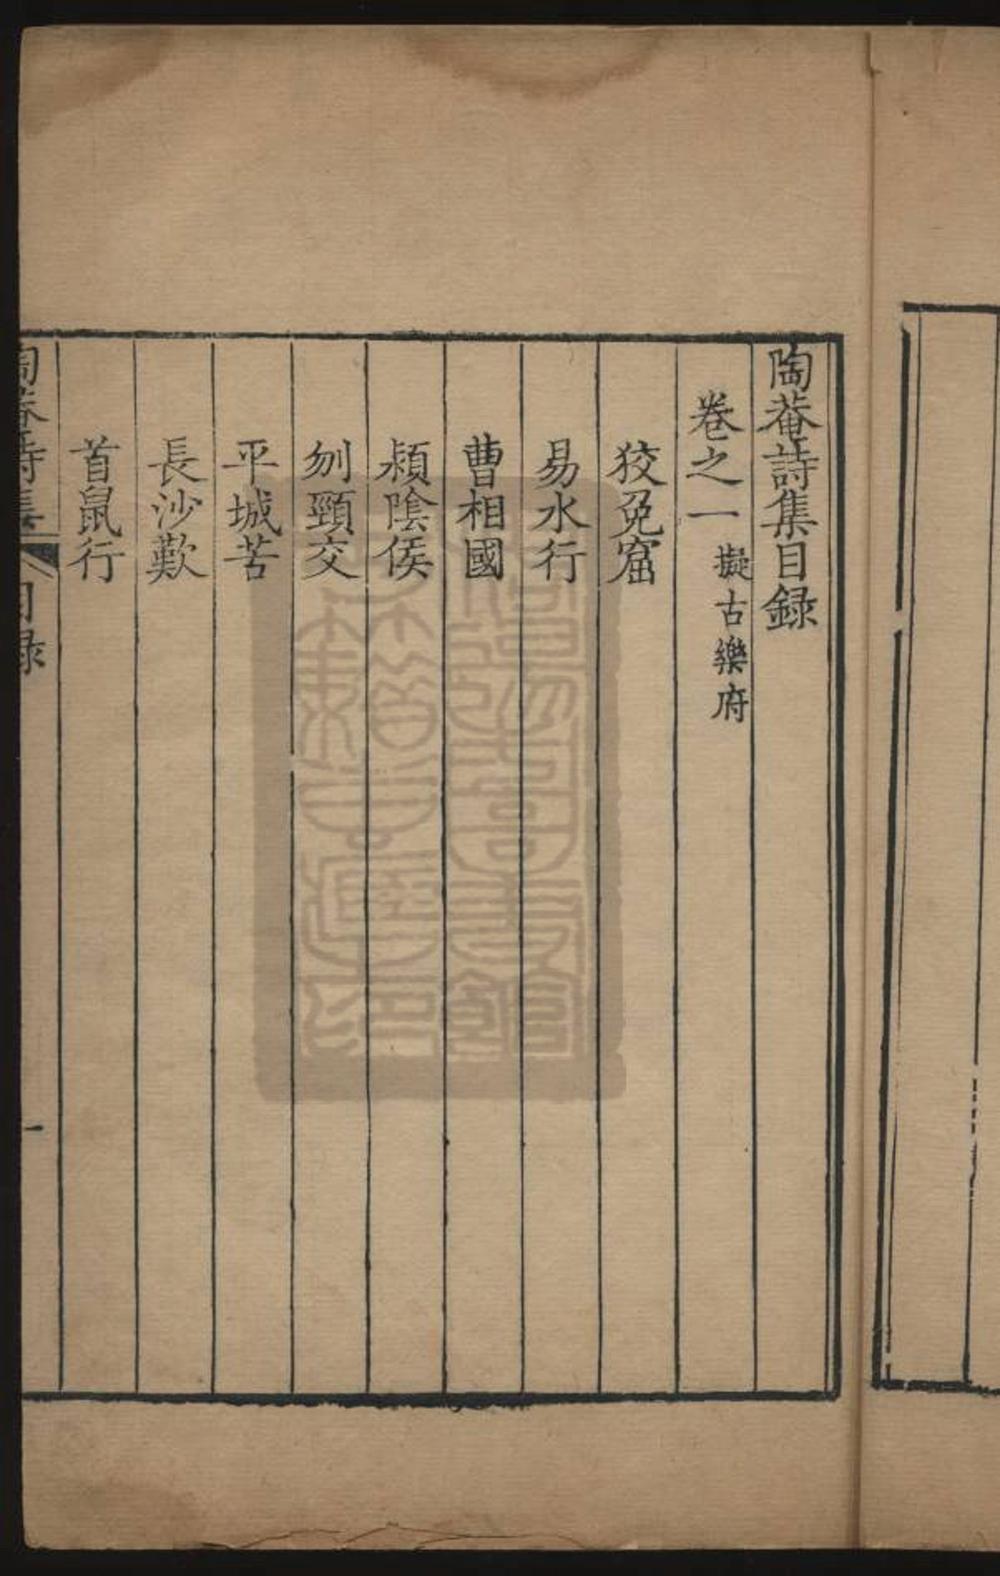 陶菴詩集目録
卷之一 擬古樂府
狡兔窟
易水行
曹相國
潁陰侯
刎頸交
平城苦
長沙歎
首鼠行
陶菴詩集 目録 一